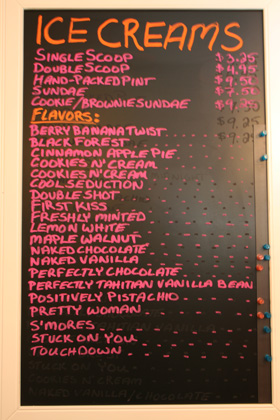 ICE CREAMS
SINGLE SCOOP $3.25
DOUBLE SCOOP $4.95
HAND-PACKED PINT $9.50
SUNDAE $7.50
COOKIE/BROWNIE SUNDAE
FLAVORS: $9.25
BERRY BANANA TWIST $9.25
BLACK FOREST
CINNAMON APPLE PIE
COOKIES N' CREAM
COOKIES N' CREAM
COOL SEDUCTION
DOUBLE SHOT
FIRST KISS
FRESHLY MINTED
LEMON WHITE
MAPLE WALNUT
NAKED CHOCOLATE
NAKED VANILLA
PERFECTLY CHOCOLATE
PERFECTLY TAHITIAN VANILLA BEAN
POSITIVELY PISTACHIO
PRETTY WOMAN
S'MORES
STUCK ON YOU
TOUCHDOWN
STUCK ON YOU
COOKIES N' CREAM
NAKED VANILLA/CHOCOLATE